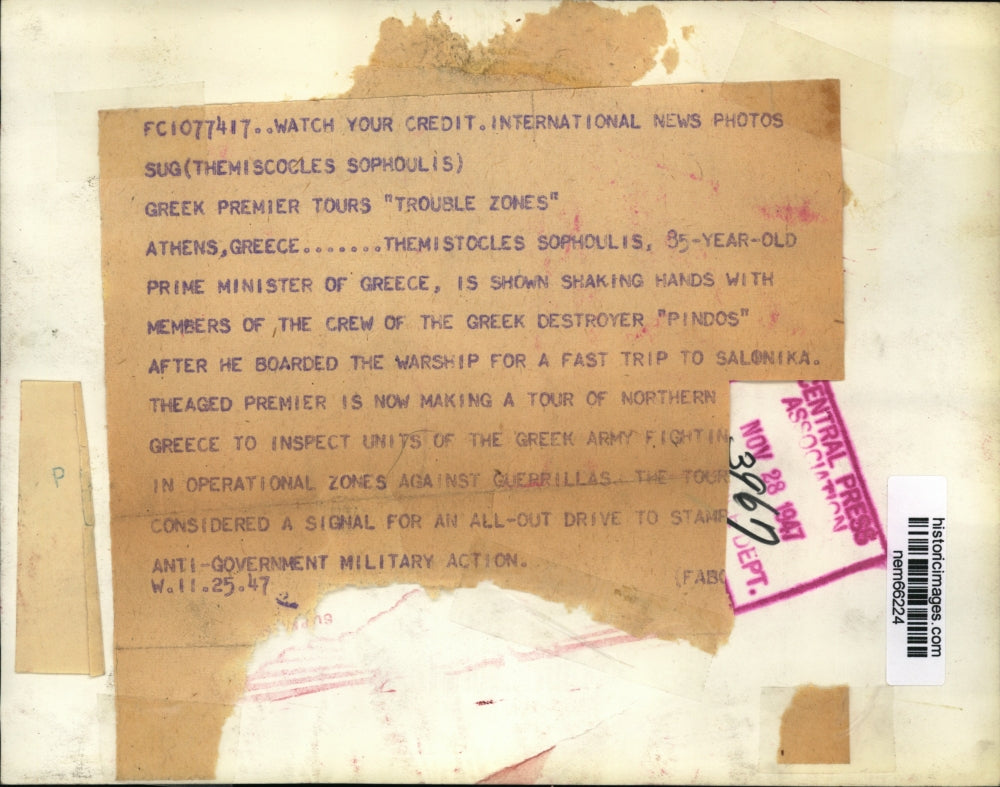 FC1077417..WATCH YOUR CREDIT.INTERNATIONAL NEWS PHOTOS
SUG(THEMISCOCLES SOPHOULIS)
GREEK PREMIER TOURS "TROUBLE ZONES"
ATHENS,GREECE.......THEMISTOCLES SOPHOULIS, 85-YEAR-OLD
PRIME MINISTER OF GREECE, IS SHOWN SHAKING HANDS WITH
MEMBERS OF ,THE CREW OF THE GREEK DESTROYER "PINDOS"
AFTER HE BOARDED THE WARSHIP FOR A FAST TRIP TO SALONIKA.
THEAGED PREMIER IS NOW MAKING A TOUR OF NORTHERN
GREECE TO INSPECT UNITS OF THE GREEK ARMY FIGHTIN
IN OPERATIONAL ZONES AGAINST GUERRILLAS. THE TOUR
CONSIDERED A SIGNAL FOR AN ALL-OUT DRIVE TO STAMP
ANTI-GOVERNMENT MILITARY ACTION.
W.11.25.47
(FABC
P
CENTRAL PRESS
ASSOCIATION
NOV 28 1947
3967
DEPT.
historicimages.com
nem66224